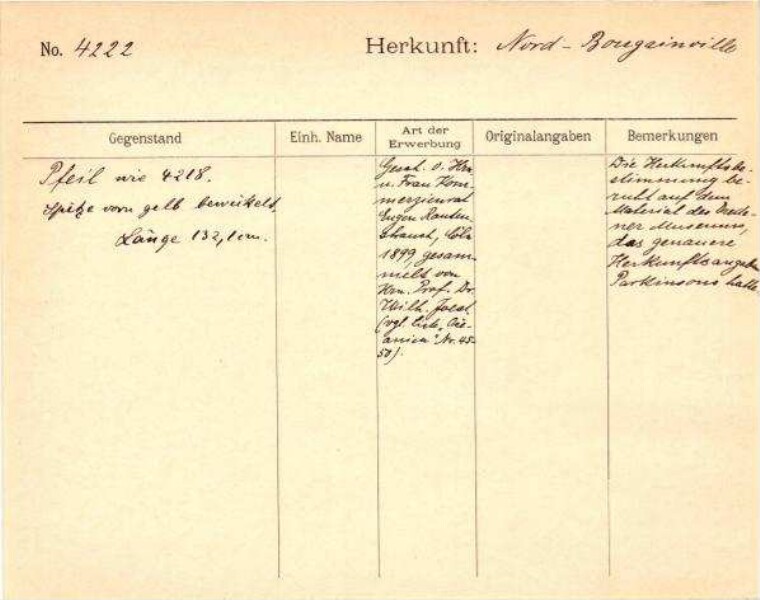 No. 4222
Herkunft: Nord-Bougainville
Gegenstand
Einh. Name
Art der
Erwerbung
Originalangaben
Bemerkungen
Pfeil wie 4218.
Spitze vorn gelb bewickelt.
Länge 132,1 cm.
Gesch. v. Hrn
u. Frau Kom-
merzienrat
Eugen Rauten-
strauch, Cöln
1899, gesam-
melt von
Hrn. Prof. Dr.
Wilh. Joest.
(vgl. "Oce-
anien" Nr. 45-
50).
Die Herkunftsbe-
stimmung be-
ruht auf dem
Material des Dresde-
ner Museums,
das genauere
Herkunftsangaben
Parkinsons hatte.